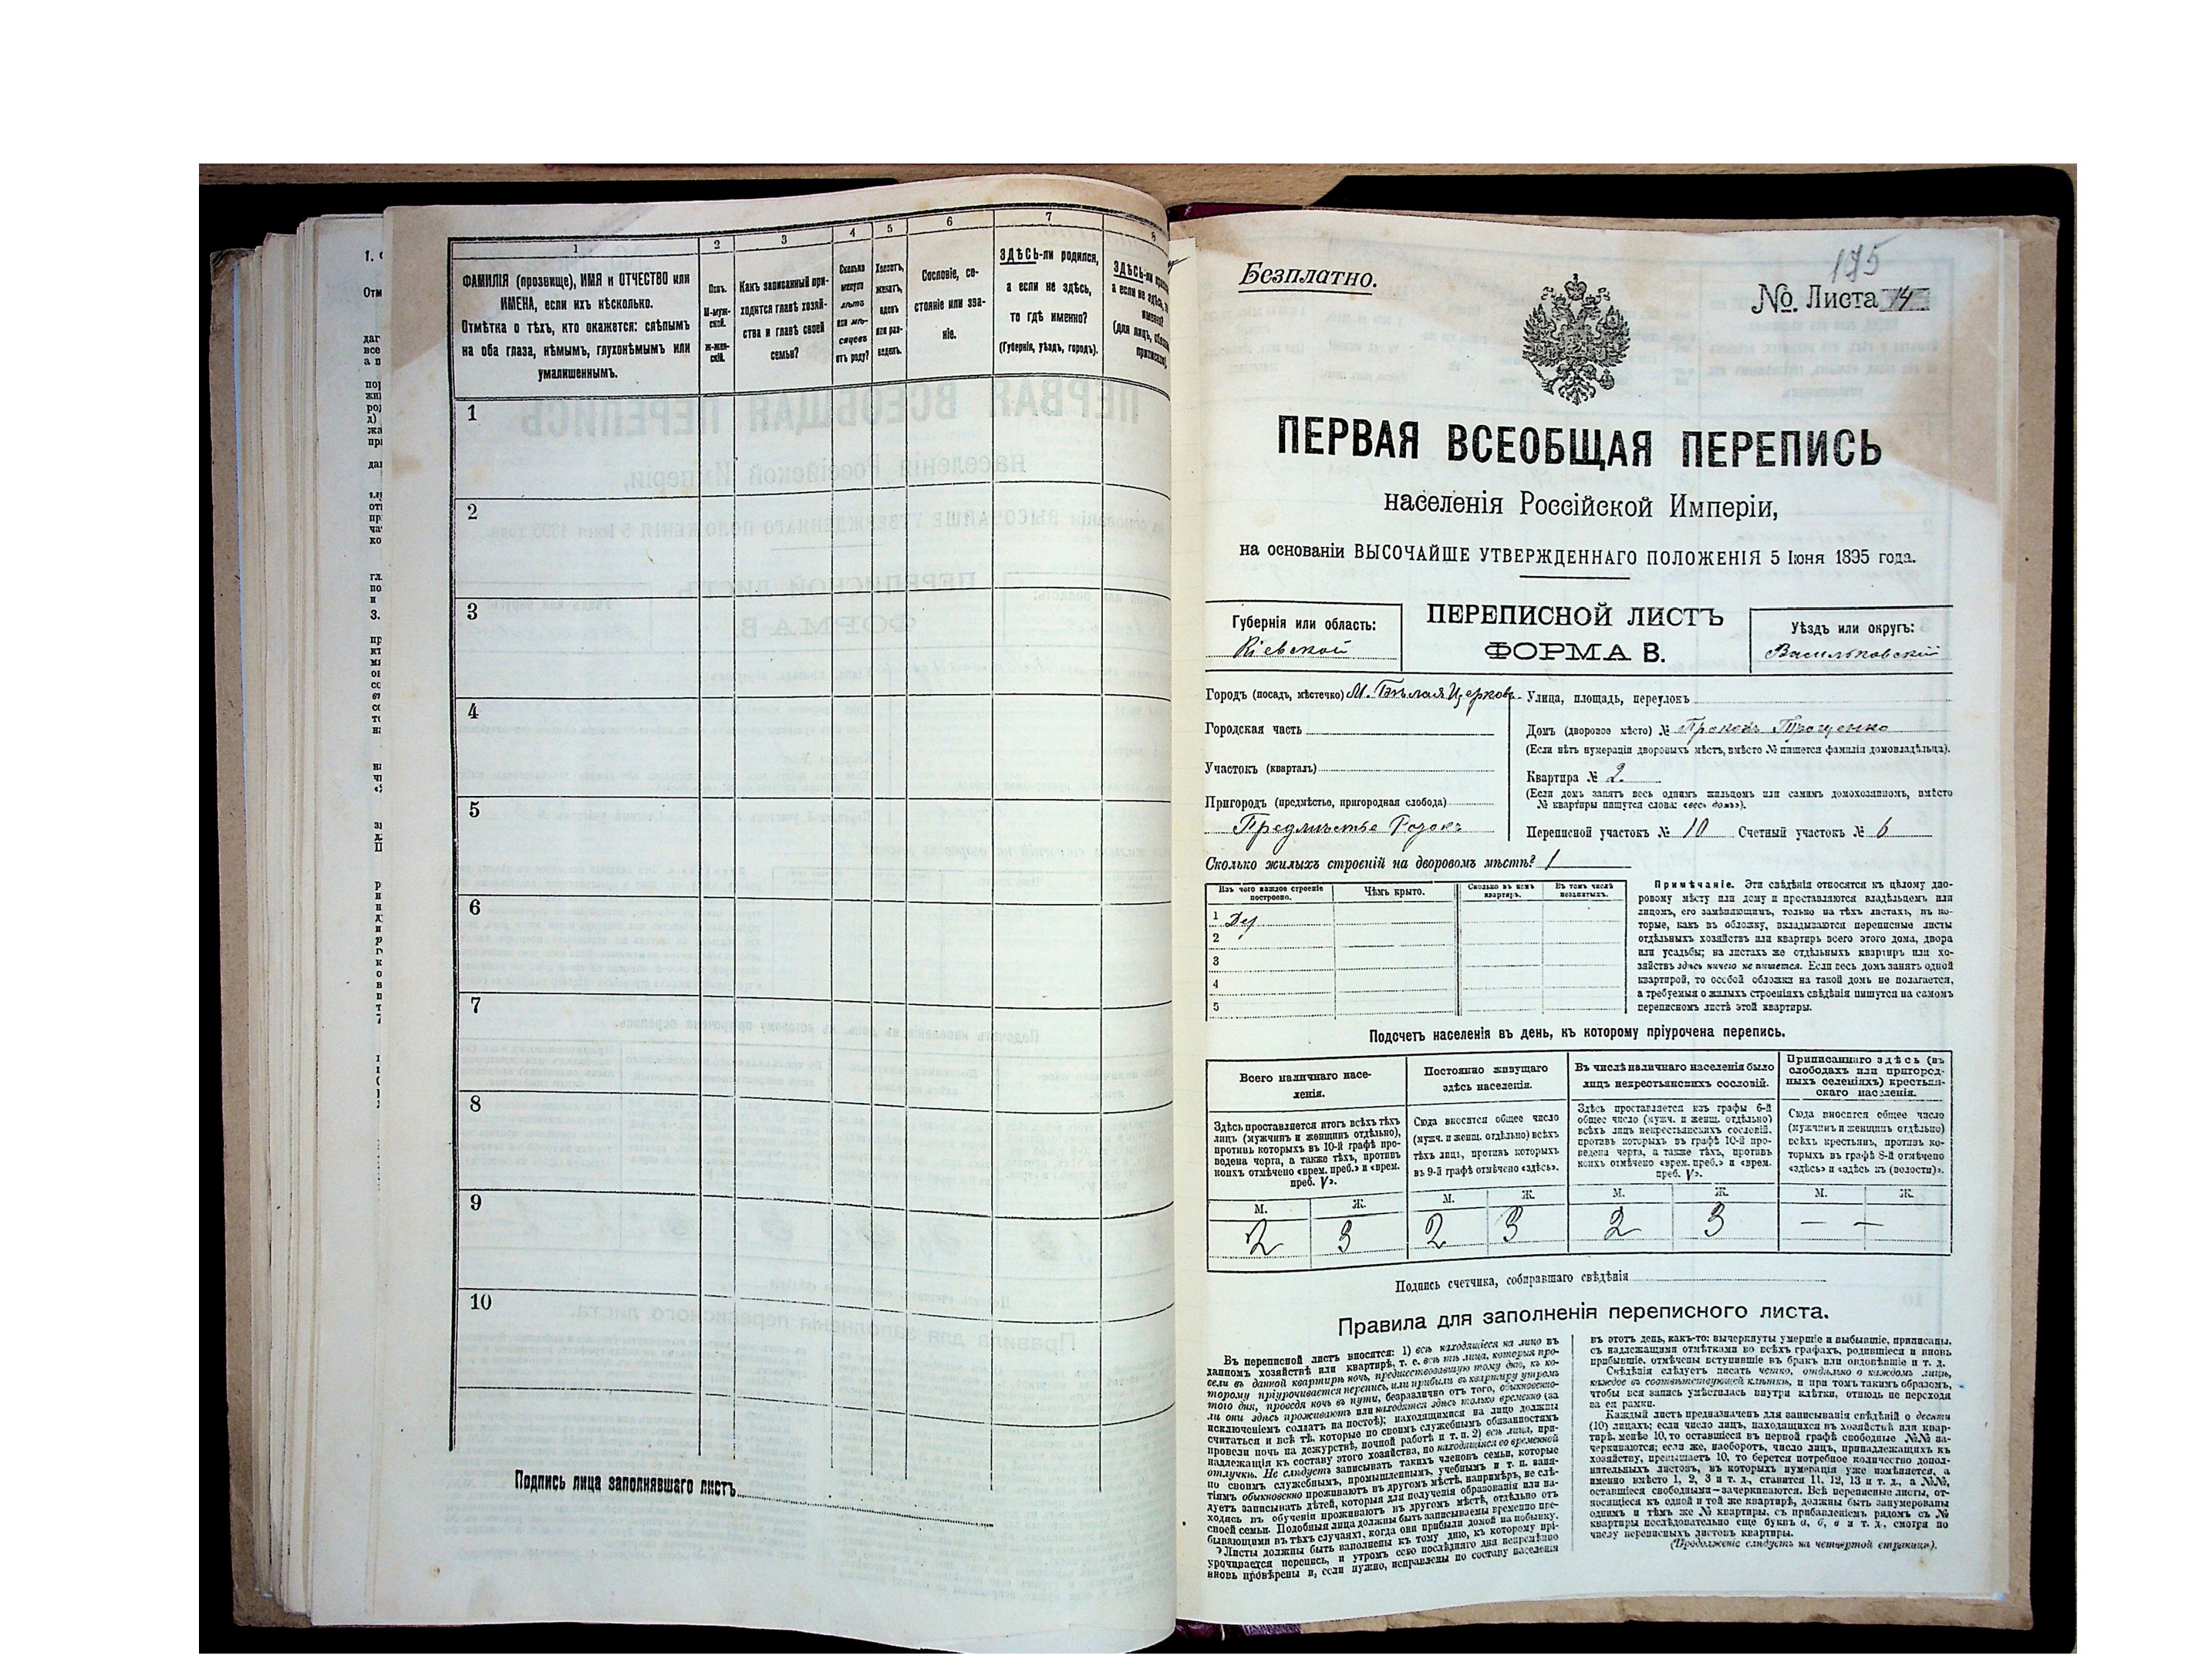 1 2 3 4 5 6 7 8
ФАМИЛІЯ (прозвище), ИМЯ и ОТЧЕСТВО или
ИМЕНА, если ихъ нѣсколько.
Отмѣтка о тѣхъ, кто окажется: слѣпымъ
на оба глаза, нѣмымъ, глухонѣмымъ или
умалишеннымъ.
Полъ.
М-муж-
ской.
Ж-жен-
скій.
Какъ записанный при-
ходится главѣ хозяй-
ства и главѣ своей
семьи?
Сколько
минуло
лѣтъ
или мѣ-
сяцевъ
отъ роду?
Холостъ,
женатъ,
вдовъ
или раз-
веденъ.
Сословіе, со-
стояніе или зва-
ніе.
ЗДѢСЬ-ли родился,
а если не здѣсь,
то гдѣ именно?
(Губернія, уѣздъ, городъ).
ЗДѢСЬ-ли
а если не здѣсь,
именно?
(для лицъ,
1
2
3
4
5
6
7
8
9
10
Подпись лица заполнявшаго листъ
175
Безплатно.
№ Листа 14
ПЕРВАЯ ВСЕОБЩАЯ ПЕРЕПИСЬ
населенія Россійской Имперіи,
на основаніи ВЫСОЧАЙШЕ УТВЕРЖДЕННАГО ПОЛОЖЕНІЯ 5 Іюня 1895 года.
Губернія или область:
Кіевской
ПЕРЕПИСНОЙ ЛИСТЪ
ФОРМА В.
Уѣздъ или округъ:
Васильковскій
Городъ (посадъ, мѣстечко) М. Бѣлая Церковь
Городская часть
Участокъ (кварталъ)
Пригородъ (предмѣстье, пригородная слобода)
Предмѣстье
Улица, площадь, переулокъ
Домъ (дворовое мѣсто) №
(Если нѣтъ нумераціи дворовыхъ мѣстъ, вмѣсто № пишется фамилія домовладѣльца).
Квартира № 2
(Если домъ занятъ весь однимъ жильцомъ или самимъ домохозяиномъ, вмѣсто
№ квартиры пишутся слова: «весь домъ»).
Переписной участокъ № 10 Счетный участокъ № 6
Сколько жилыхъ строеній на дворовомъ мѣстѣ? 1
Изъ чего каждое строеніе
построено.
Чѣмъ крыто.
Сколько въ немъ
квартиръ.
Въ томъ числѣ
незанятыхъ.
1 Дер
2
3
4
5
Примѣчаніе. Эти свѣдѣнія относятся къ цѣлому дво-
ровому мѣсту или дому и проставляются владѣльцемъ или
лицомъ, его замѣняющимъ, только на тѣхъ листахъ, въ ко-
торые, какъ въ обложку, вкладываются переписные листы
отдѣльныхъ хозяйствъ или квартиръ всего этого дома, двора
или усадьбы; на листахъ же отдѣльныхъ квартиръ или хо-
зяйствъ здѣсь ничего не пишется. Если весь домъ занятъ одной
квартирой, то особой обложки на такой домъ не полагается,
а требуемыя о жилыхъ строеніяхъ свѣдѣнія пишутся на самомъ
переписномъ листѣ этой квартиры.
Подсчетъ населенія въ день, къ которому пріурочена перепись.
Всего наличнаго насе-
ленія.
Здѣсь проставляется итогъ всѣхъ тѣхъ
лицъ (мужчинъ и женщинъ отдѣльно),
противъ которыхъ въ 10-й графѣ про-
ведена черта, а также тѣхъ, противъ
коихъ отмѣчено «врем. преб.» и «врем.
преб. V».
Постоянно живущаго
здѣсь населенія.
Сюда вносится общее число
(мужч. и женщ. отдѣльно) всѣхъ
тѣхъ лицъ, противъ которыхъ
въ 9-й графѣ отмѣчено «здѣсь».
Въ числѣ наличнаго населенія было
лицъ некрестьянскихъ сословій.
Здѣсь проставляется изъ графы 6-й
общее число (мужч. и женщ. отдѣльно)
всѣхъ лицъ некрестьянскихъ сословій,
противъ которыхъ въ графѣ 10-й про-
ведена черта, а также тѣхъ, противъ
коихъ отмѣчено «врем. преб.» и «врем.
преб. V».
Приписаннаго здѣсь (въ
слободахъ или пригород-
ныхъ селеніяхъ) крестьян-
скаго населенія.
Сюда вносится общее число
(мужчинъ и женщинъ отдѣльно)
всѣхъ крестьянъ, противъ ко-
торыхъ въ графѣ 8-й отмѣчено
«здѣсь» и «здѣсь къ (волости)».
М. Ж. М. Ж. М. Ж. М. Ж.
2 3 2 3 2 3 — —
Подпись счетчика, собиравшаго свѣдѣнія
Правила для заполненія переписного листа.
Въ переписной листъ вносятся: 1) всѣ находящіеся на лицо въ
данномъ хозяйствѣ или квартирѣ, т. е. всѣ тѣ лица, которыя про-
вели въ данной квартирѣ ночь, предшествовавшую тому дню, къ ко-
торому пріурочивается перепись, или прибыли въ квартиру утромъ
того дня, проведя ночь въ пути, безразлично отъ того, обыкновенно-
ли они здѣсь проживаютъ или находятся здѣсь только временно (за
исключеніемъ солдатъ на постоѣ); находящимися на лицо должны
считаться и всѣ тѣ, которые по своимъ служебнымъ обязанностямъ
провели ночь на дежурствѣ, ночной работѣ и т. п. 2) всѣ лица, при-
надлежащія къ составу этого хозяйства, но находящіяся во временной
отлучкѣ. Не слѣдуетъ записывать такихъ членовъ семьи, которые
по своимъ служебнымъ, промышленнымъ, учебнымъ и т. п. заня-
тіямъ обыкновенно проживаютъ въ другомъ мѣстѣ, напримѣръ, не слѣ-
дуетъ записывать дѣтей, которыя для полученія образованія или на-
ходясь въ обученіи проживаютъ въ другомъ мѣстѣ, отдѣльно отъ
своей семьи. Подобныя лица должны быть записываемы временно пре-
бывающими въ тѣхъ случаяхъ, когда они прибыли домой на побывку.
Листы должны быть заполнены къ тому дню, къ которому прі-
урочивается перепись, и утромъ сего послѣдняго дня непремѣнно
вновь провѣрены и, если нужно, исправлены по составу населенія
въ этотъ день, какъ-то: вычеркнуты умершіе и выбывшіе, приписаны,
съ надлежащими отмѣтками во всѣхъ графахъ, родившіеся и вновь
прибывшіе, отмѣчены вступившіе въ бракъ или овдовѣвшіе и т. д.
Свѣдѣнія слѣдуетъ писать четко, отдѣльно о каждомъ лицѣ,
каждое въ соотвѣтствующей клѣткѣ, и при томъ такимъ образомъ,
чтобы вся запись умѣстилась внутри клѣтки, отнюдь не переходя
за ея рамки.
Каждый листъ предназначенъ для записыванія свѣдѣній о десяти
(10) лицахъ; если число лицъ, находящихся въ хозяйствѣ или квар-
тирѣ, менѣе 10, то оставшіеся въ первой графѣ свободные №№ за-
черкиваются; если же, наоборотъ, число лицъ, принадлежащихъ къ
хозяйству, превышаетъ 10, то берется потребное количество допол-
нительныхъ листовъ, въ которыхъ нумерація уже измѣняется, а
именно вмѣсто 1, 2, 3 и т. д., ставится 11, 12, 13 и т. д., а №№,
оставшіеся свободными—зачеркиваются. Всѣ переписные листы, от-
носящіеся къ одной и той же квартирѣ, должны быть занумерованы
однимъ и тѣмъ же № квартиры, съ прибавленіемъ рядомъ съ №
квартиры послѣдовательно еще буквъ а, б, в и т. д., смотря по
числу переписныхъ листовъ квартиры.
(Продолженіе слѣдуетъ на четвертой страницѣ).